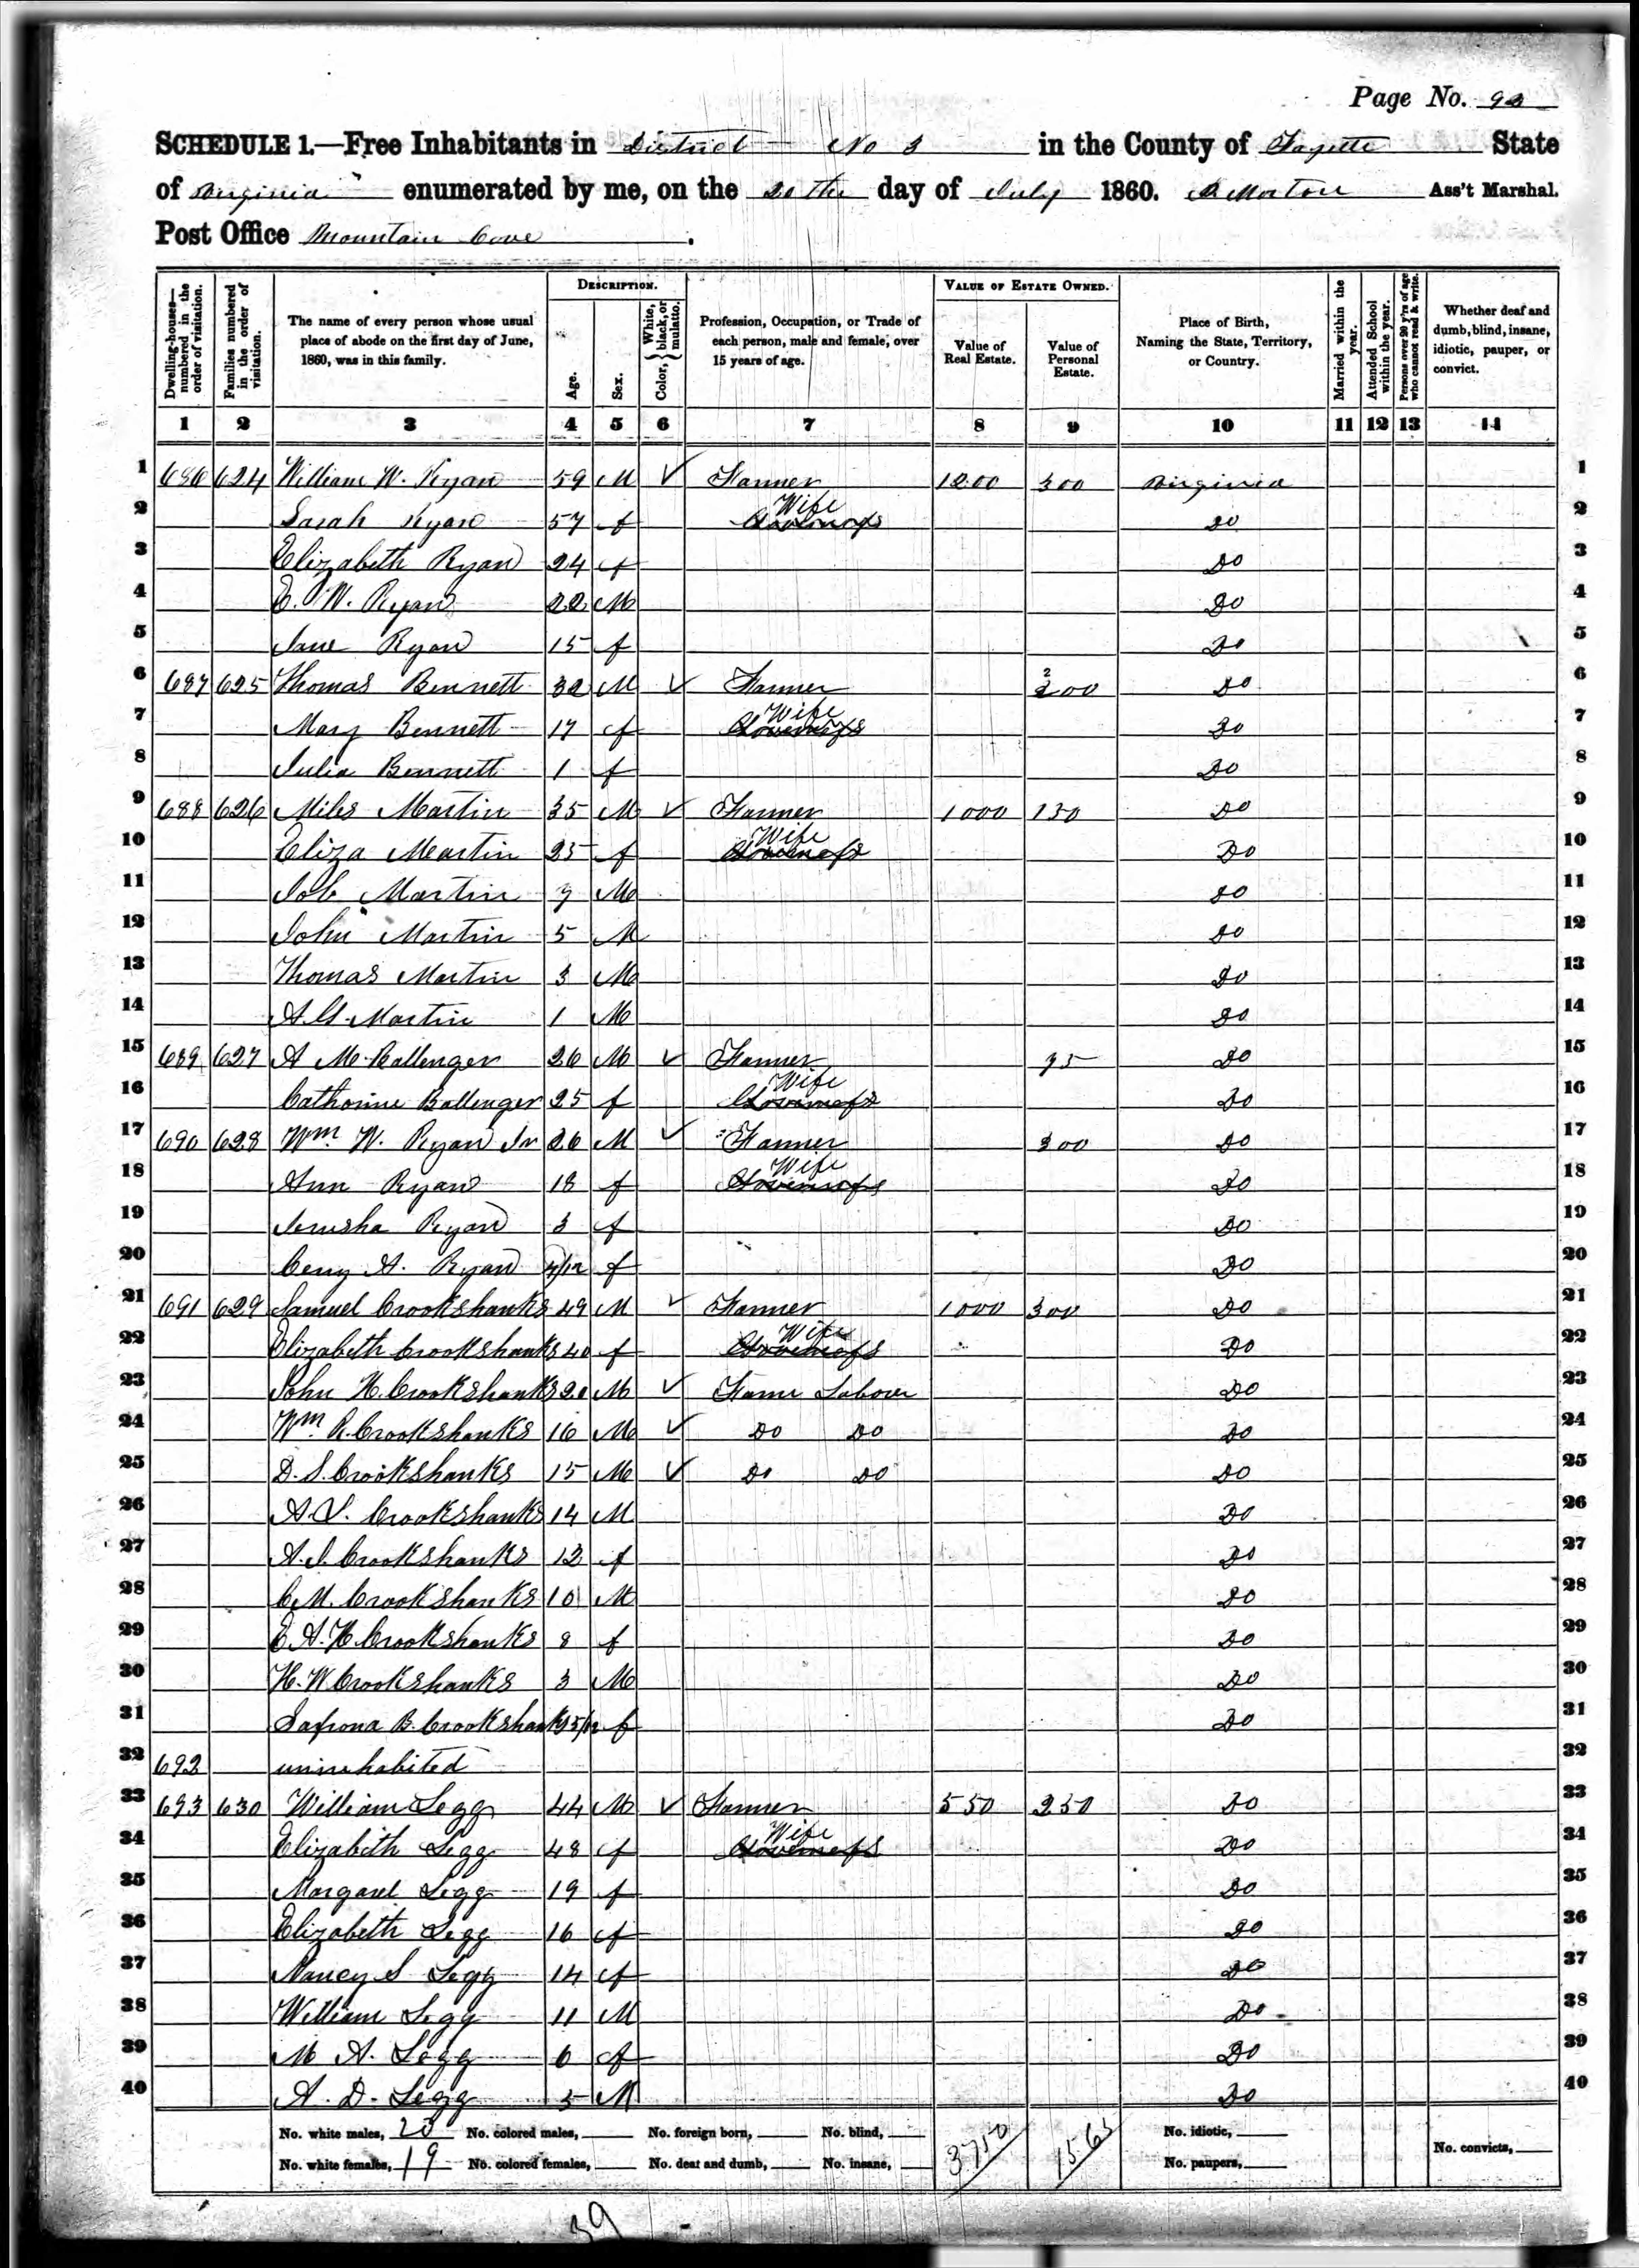 Page No. 93
SCHEDULE 1.—Free Inhabitants in District No 3 in the County of Fayette State
of Virginia enumerated by me, on the 20th day of July 1860. Morton Ass't Marshal.
Post Office Mountain Cove.
Dwelling-houses—numbered in the order of visitation. Families numbered in the order of visitation. The name of every person whose usual place of abode on the first day of June, 1860, was in this family. DESCRIPTION. Age. Sex. Color, White, black, or mulatto. Profession, Occupation, or Trade of each person, male and female, over 15 years of age. VALUE OF ESTATE OWNED. Value of Real Estate. Value of Personal Estate. Place of Birth, Naming the State, Territory, or Country. Married within the year. Attended School within the year. Persons over 20 y'rs of age who cannot read & write. Whether deaf and dumb, blind, insane, idiotic, pauper, or convict.
1 2 3 4 5 6 7 8 9 10 11 12 13 14
1 686 624 William W. Ryan 59 M ✓ Farmer 1200 300 Virginia 1
2 Sarah Ryan 57 f Wife Do 2
3 Elizabeth Ryan 24 f Do 3
4 E. W. Ryan 22 M Do 4
5 Jane Ryan 15 f Do 5
6 687 625 Thomas Bennett 32 M ✓ Farmer 200 Do 6
7 Mary Bennett 17 f Wife Do 7
8 Julia Bennett 1 f Do 8
9 688 626 Miles Martin 35 M ✓ Farmer 1000 150 Do 9
10 Eliza Martin 25 f Wife Do 10
11 Job Martin 7 M Do 11
12 John Martin 5 M Do 12
13 Thomas Martin 3 M Do 13
14 A. G. Martin 1 M Do 14
15 689 627 A M Ballenger 26 M ✓ Farmer 95 Do 15
16 Catharine Ballenger 25 f Wife Do 16
17 690 628 Wm W. Ryan Jr 26 M ✓ Farmer 300 Do 17
18 Ann Ryan 18 f Wife Do 18
19 Jerusha Ryan 3 f Do 19
20 A. Ryan /12 f Do 20
21 691 629 Samuel Crookshanks 49 M ✓ Farmer 1000 300 Do 21
22 Elizabeth Crookshanks 40 f Wife Do 22
23 John H. Crookshanks 20 M ✓ Farm Labour Do 23
24 Wm R. Crookshanks 16 M ✓ Do Do Do 24
25 D. S. Crookshanks 15 M ✓ Do Do Do 25
26 A. V. Crookshanks 14 M Do 26
27 A. J. Crookshanks 12 f Do 27
28 C. M. Crookshanks 10 M Do 28
29 E A. H. Crookshanks 8 f Do 29
30 H. W Crookshanks 3 M Do 30
31 Safrona B. Crookshanks 5/12 f Do 31
32 692 uninhabited 32
33 693 630 William Legg 44 M ✓ Farmer 550 250 Do 33
34 Elizabeth Legg 48 f Wife Do 34
35 Margaret Legg 19 f Do 35
36 Elizabeth Legg 16 f Do 36
37 Nancy S Legg 14 f Do 37
38 William Legg 11 M Do 38
39 M A. Legg 6 f Do 39
40 A. D. Legg 5 M Do 40
No. white males, 20 No. colored males, No. foreign born, No. blind, 3750 1565 No. idiotic, No. convicts,
No. white females, 19 No. colored females, No. deaf and dumb, No. insane, No. paupers,
39